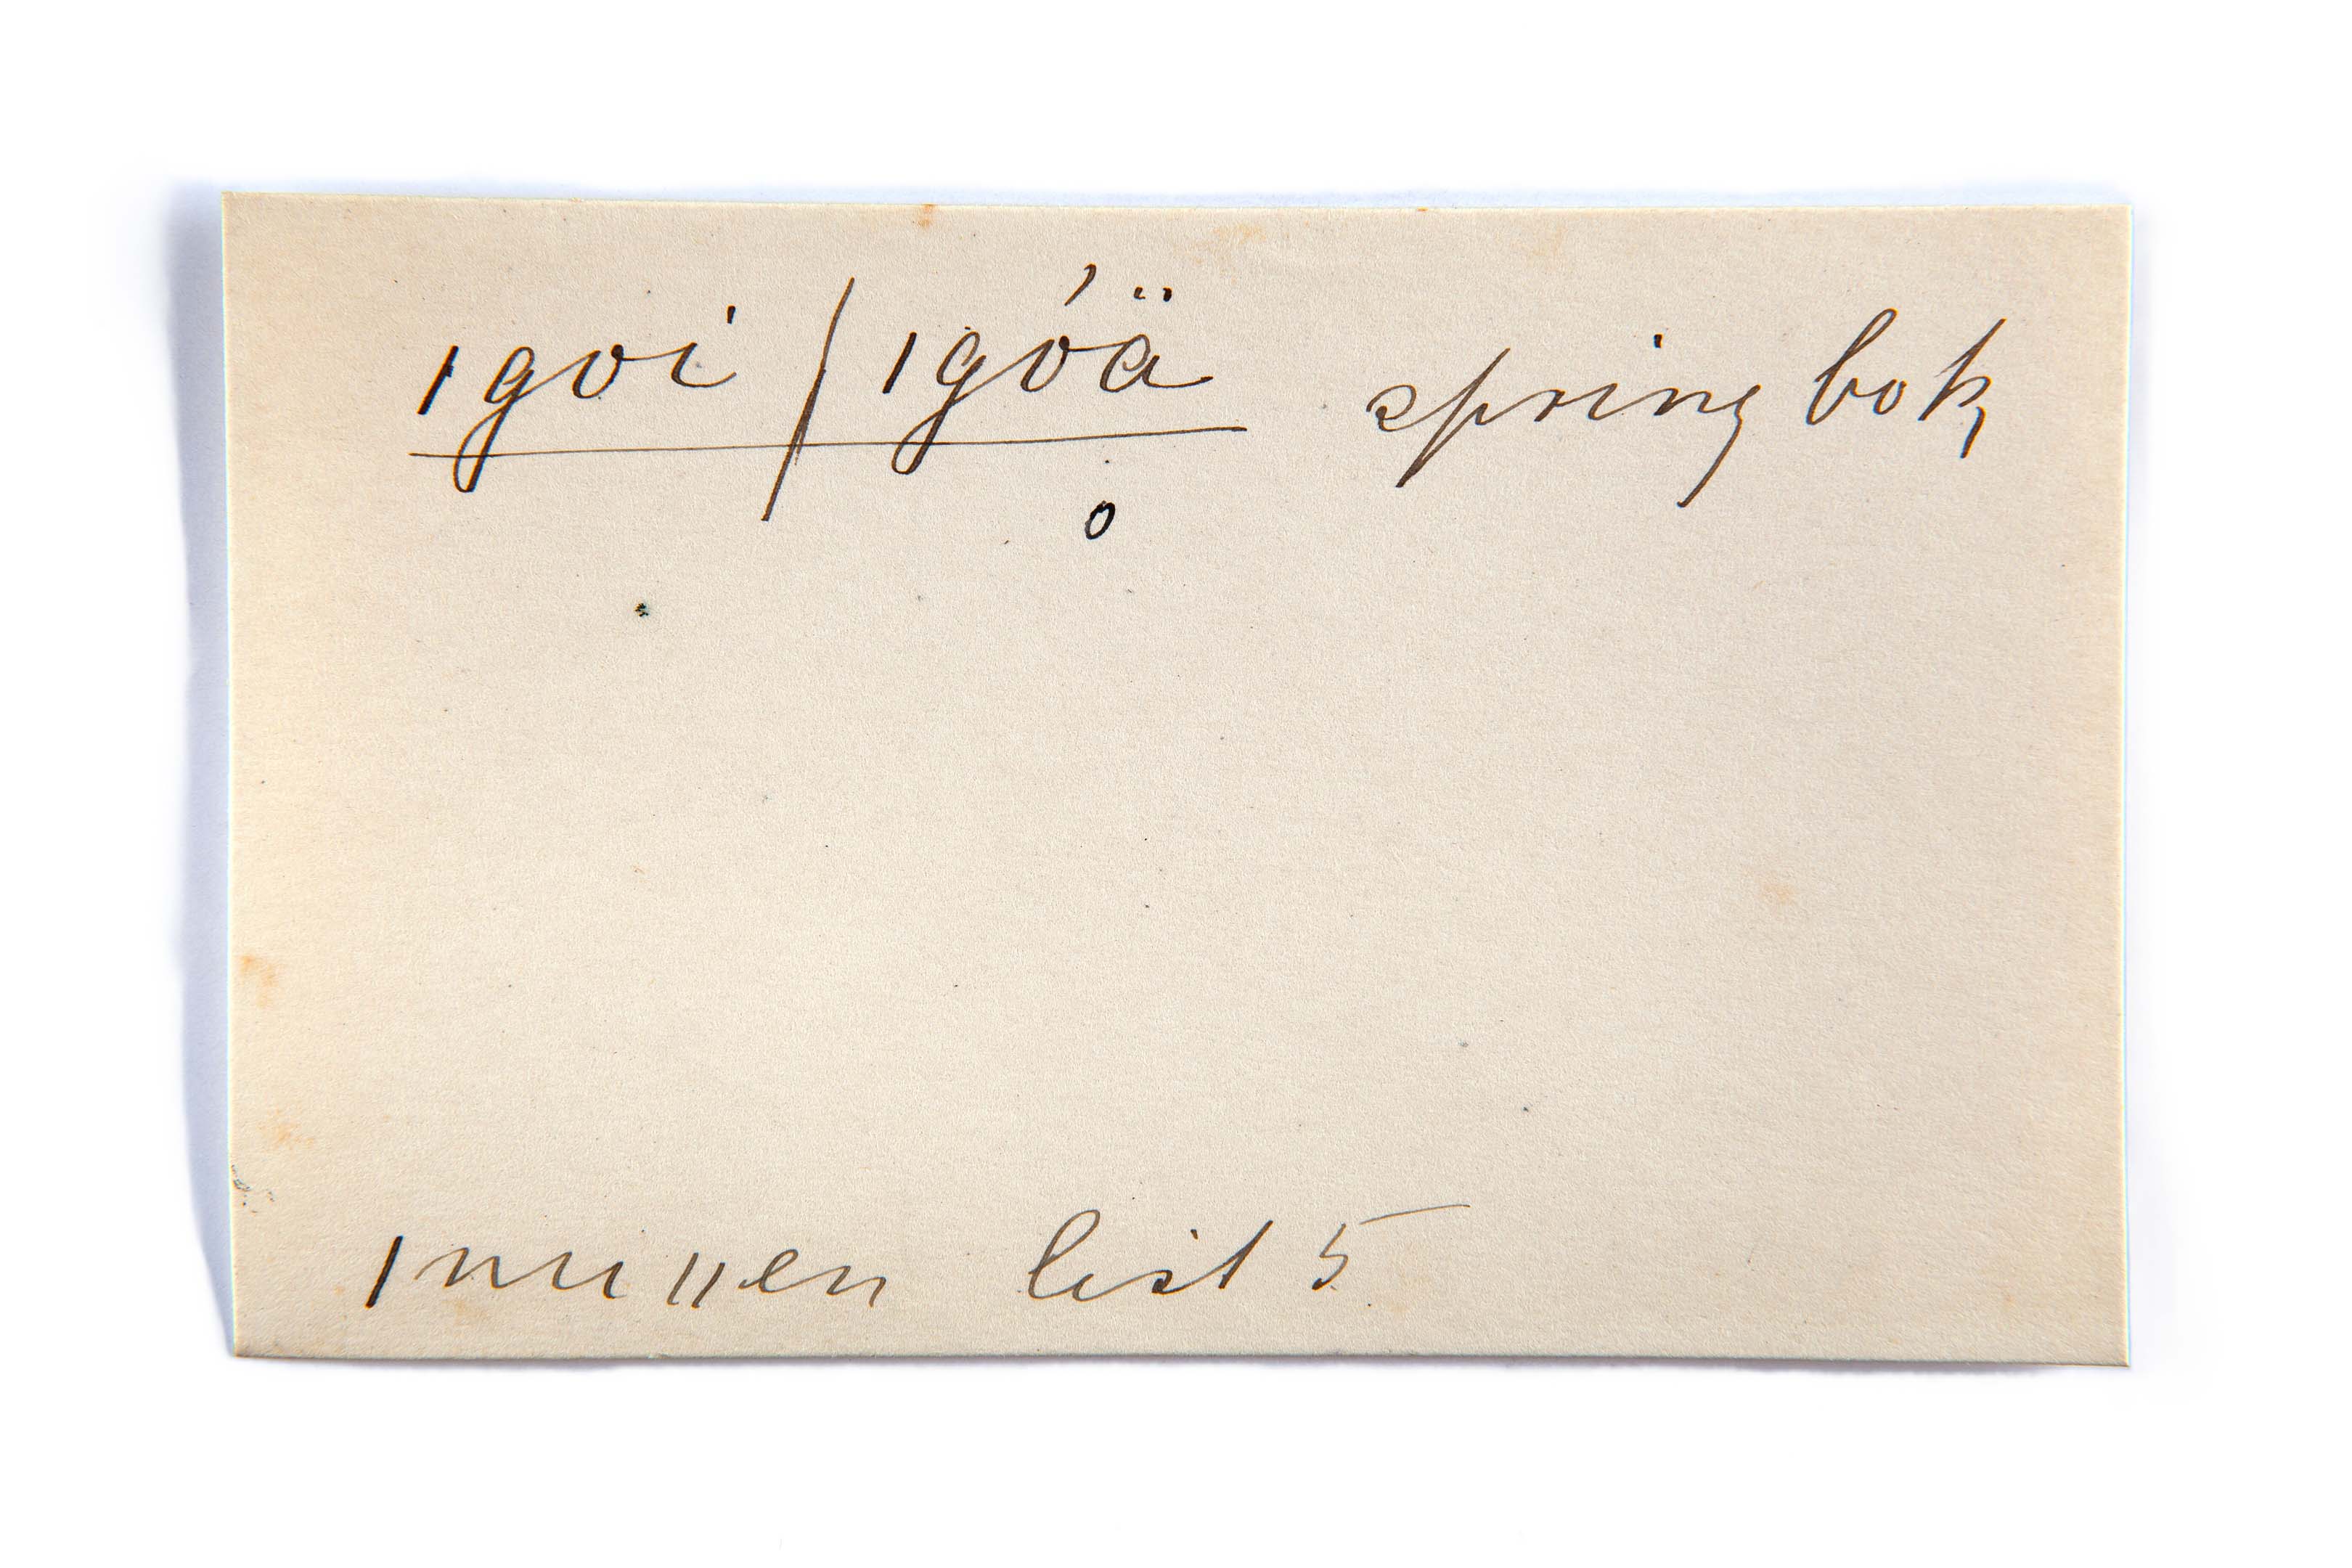 ǀgoi / ǀgóä springbok,
o
ǀnuǁen list 5